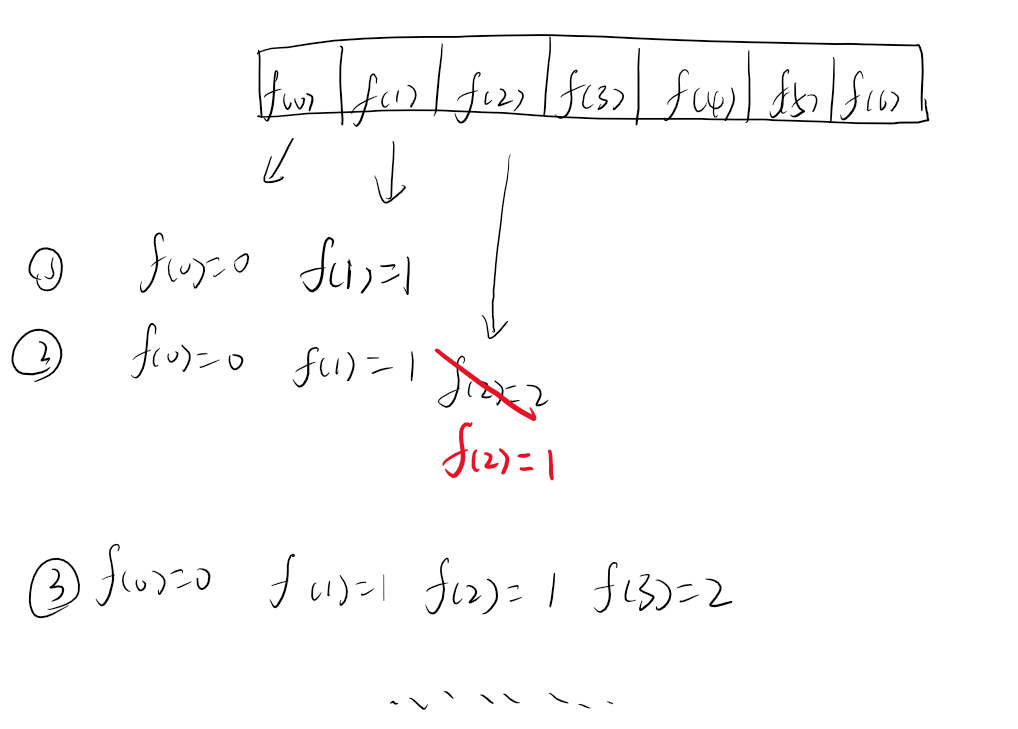 f(0) f(1) f(2) f(3) f(4) f(5) f(6)
① f(0)=0 f(1)=1
② f(0)=0 f(1)=1 f(2)=2
f(2)=1
③ f(0)=0 f(1)=1 f(2)=1 f(3)=2